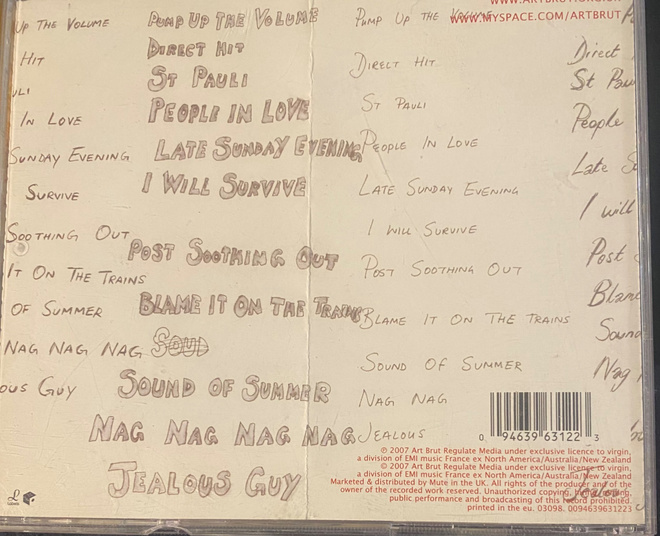 WWW.ARTBRUT.ORG.UK
WWW.MYSPACE.COM/ARTBRUT
UP THE VOLUME
HIT
ULI
IN LOVE
SUNDAY EVENING
SURVIVE
SOOTHING OUT
IT ON THE TRAINS
OF SUMMER
NAG NAG NAG
OUS GUY
PUMP UP THE VOLUME
DIRECT HIT
ST PAULI
PEOPLE IN LOVE
LATE SUNDAY EVENING
I WILL SURVIVE
POST SOOTHING OUT
BLAME IT ON THE TRAINS
SOUD
SOUND OF SUMMER
NAG NAG NAG NAG
JEALOUS GUY
PUMP UP THE VOLUME
DIRECT HIT
ST PAULI
PEOPLE IN LOVE
LATE SUNDAY EVENING
I WILL SURVIVE
POST SOOTHING OUT
BLAME IT ON THE TRAINS
SOUND OF SUMMER
NAG NAG
JEALOUS
Direct
St Pau
People
Late S
I will
Post
Blame
Sound
Nag
Jealou
0 94639 63122 3
℗ 2007 Art Brut Regulate Media under exclusive licence to virgin,
a division of EMI music France ex North America/Australia/New Zealand
© 2007 Art Brut Regulate Media under exclusive licence to virgin,
a division of EMI music France ex North America/Australia/New Zealand
Marketed & distributed by Mute in the UK. All rights of the producer and of the
owner of the recorded work reserved. Unauthorized copying,
public performance and broadcasting of this record prohibited.
printed in the eu. 03098. 0094639631223